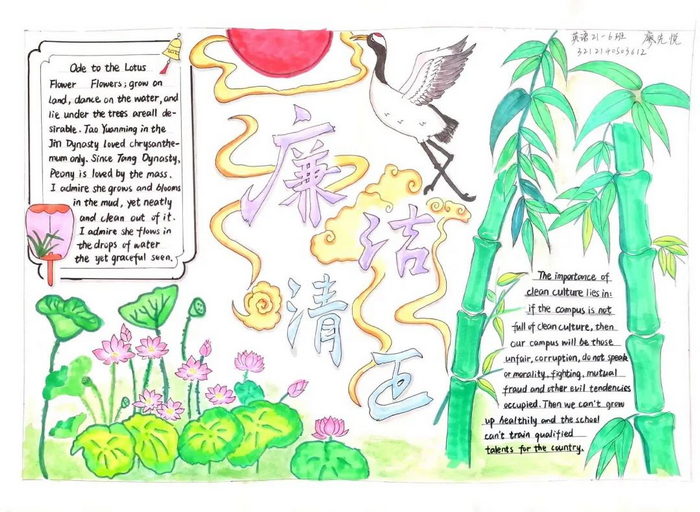 英语21-6班 廖先悦
3212140503612
Ode to the Lotus
Flower Flowers; grow on
land, dance on the water, and
lie under the trees areall de-
sirable. Tao Yuanming in the
Jin Dynasty loved chrysanthe-
mum only. Since Tang Dynasty,
Peony is loved by the mass.
I admire she grows and blooms
in the mud, yet neatly
and clean out of it.
I admire she flows in
the drops of water
the yet graceful seen.
廉
洁
清
正
The importance of
clean culture lies in:
if the campus is not
full of clean culture, then
our campus will be those
unfair, corruption, do not speak
or morality, fighting, mutual
fraud and other evil tendencies
occupied. Then we can't grow
up healthily and the school
can't train qualified
talents for the country.